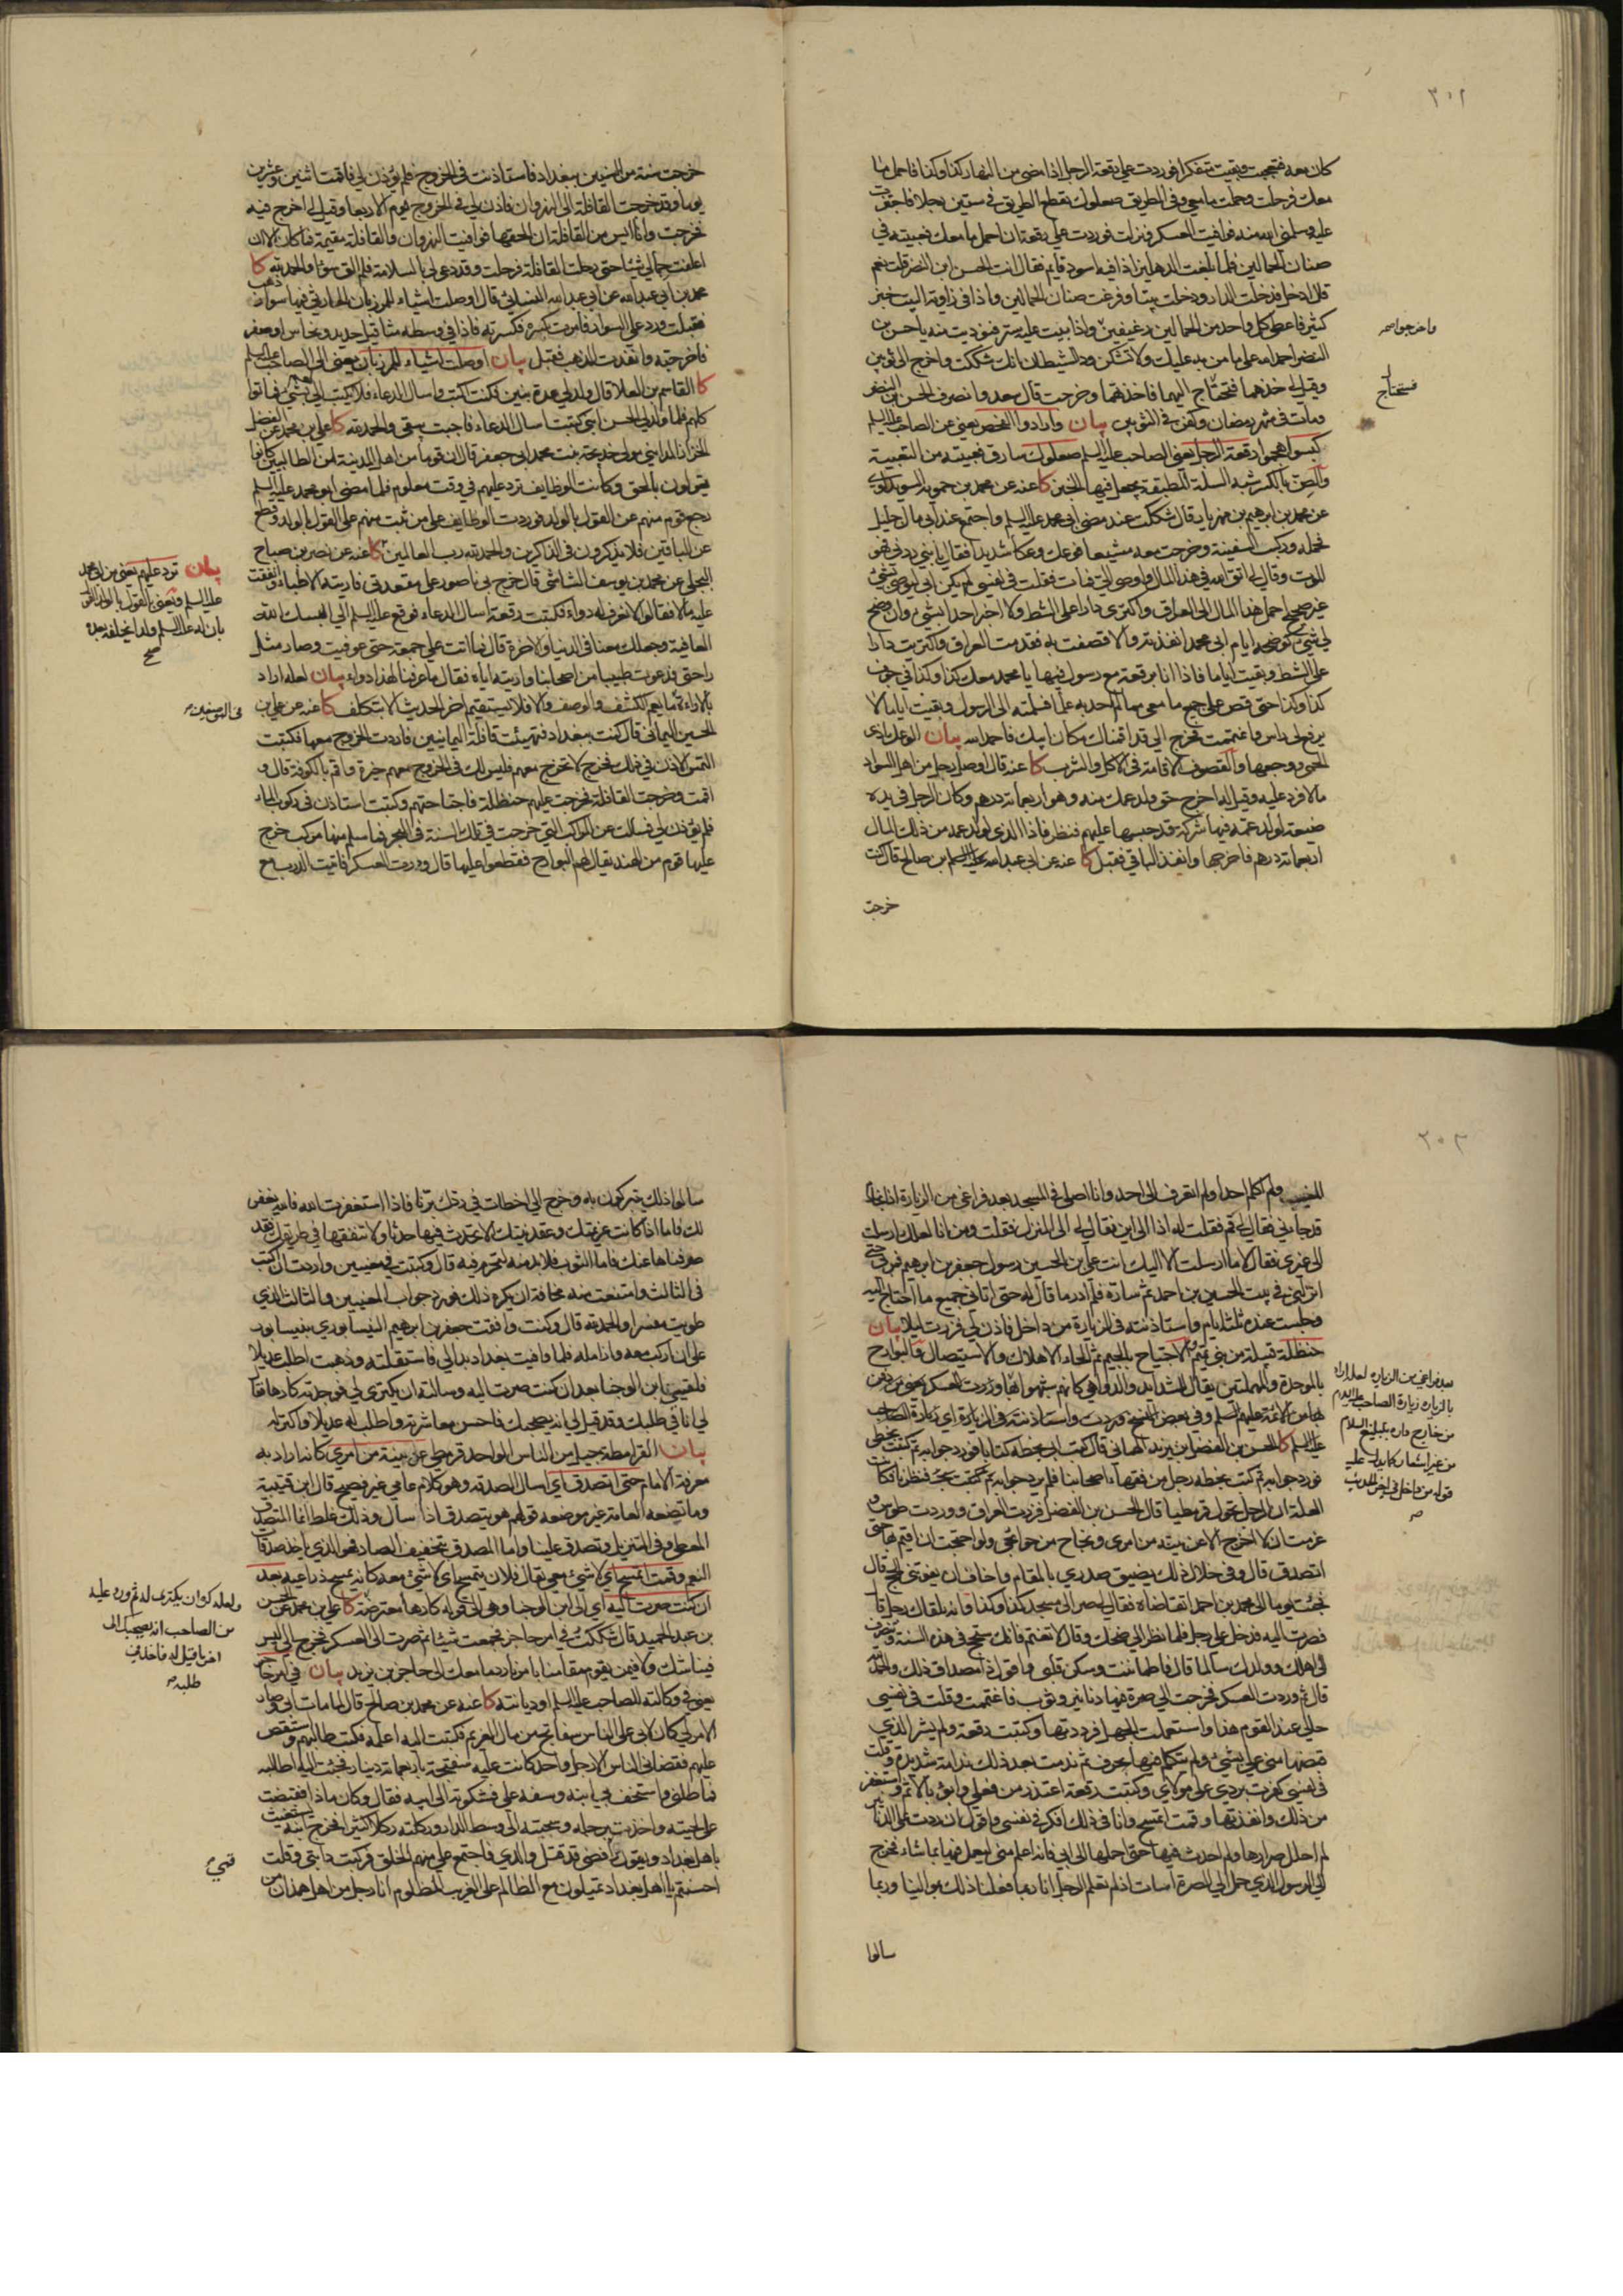 ٣٠١
كان معه فتعجبت وبقيت متفكرا فوردت علي رقعة الرجل اذا مضى من النهار كذا وكذا فاحمل ما
معك فرحلت وحملت ما معي وفي الطريق صعلوك يقطع الطريق في ستين رجلا فاجتزت
عليه وسلمني الله منه فوافيت العسكر ونزلت فوردت علي رقعة ان احمل ما معك فعبيته في
صنان الحمالين فلما بلغت الدهليز اذا فيه اسود قايم فقال انت الحسن ابن النضر قلت نعم
قال ادخل فدخلت الدار ودخلت بيتا وفرغت صنان الحمالين واذا في زاوية البيت خبز
كثير فاعطى كل واحد من الحمالين رغيفين واخرجوا واذا بيت عليه ستر فنوديت منه يا حسن بن
النضر احمد الله على ما من به عليك ولا تشكن فود الشيطان انك شككت واخرج الي ثوبين
وقيل لي خذهما فتحتاج اليهما فاخذتهما وخرجت قال سعد وانصرف الحسن بن النضر
ومات في شهر رمضان وكفن في الثوبين بيان وارادوا الفحص يعني عن الصاحب عليه السلم
كبسوا هجموا رقعة الرجل يعني الصاحب عليه السلم صعلوك سارق فعبيته من التعبية
والصن بالكسر شبه السلة المطبقة يجعل فيها الخبز كا عنه عن محمد بن حمويه السويداوي
عن محمد بن ابراهيم بن مهزيار قال شككت عند مضي ابي محمد عليه السلم واجتمع عند ابي مال جليل
فحمله وركب السفينة وخرجت معه مشيعا فوعك وعكا شديدا فقال يا بني ردني فهو
الموت وقال لي اتق الله في هذا المال فاوصى الي فمات فقلت في نفسي لم يكن ابي ليوصي بشيء
غير صحيح احمل هذا المال الى العراق واكتري دارا على الشط ولا اخبر احدا بشيء وان وضح
لي شيء كوضوحه ايام ابي محمد انفذته والا قصفت به فقدمت العراق واكتريت دارا
على الشط وبقيت اياما فاذا انا برقعة مع رسول فيها يا محمد معك كذا وكذا في جوف
كذا وكذا حتى قص علي جميع ما معي مما لم احط به علما فسلمته الى الرسول وبقيت اياما لا
يرفع لي راس واغتممت فخرج الي قد اقمناك مكان ابيك فاحمد الله بيان الوعك اذى
الحمى ووجعها والقصوف الاقامة في الاكل والشرب كا عنه قال اوصل رجل من اهل السواد
مالا فرد عليه وقيل له اخرج حق ولد عمك منه وهو اربعمائة درهم وكان الرجل في يده
ضيعة لولد عمه فيها شركة قد حبسها عليهم فنظر فاذا الذي لولد عمه من ذلك المال
اربعمائة درهم فاخرجها وانفذ الباقي فقبل كا عنه عن ابي عبد الله بن صالح قال كنت
خرجت
خرجت سنة من السنين ببغداد فاستاذنت في الخروج فلم يؤذن لي فاقمت اثنين وعشرين
يوما وقد خرجت القافلة الى النهروان فاذن لي في الخروج يوم الاربعا وقيل لي اخرج فيه
فخرجت وانا آيس من القافلة ان الحقها فوافيت النهروان والقافلة مقيمة فما كان الا ان
اعلفت جمالي شيئا حتى رحلت القافلة فرحلت وقد دعى لي بالسلامة فلم الق سوءا والحمد لله كا
محمد بن ابي عبد الله عن ابي عبد الله النسائي قال اوصلت اشياء للمرزباني الحارثي فيها سوار ذهب
فقبلت ورد علي السوار فامرت بكسره فكسرته فاذا في وسطه مثاقيل حديد ونحاس او صفر
فاخرجته وانفذت الذهب فقبل بيان اوصلت اشياء للمرزبان يعني الى الصاحب عليه السلم
كا القاسم بن العلا قال ولد لي عدة بنين فكنت اكتب واسال الدعاء فلا يكتب الي لهم بشيء فماتوا
كلهم فلما ولد لي الحسن ابني كتبت اسال الدعاء فاجبت يبقى والحمد لله كا علي بن محمد عن الفضل
الخزاز المدايني مولى خديجة بنت محمد ابي جعفر قال ان قوما من اهل المدينة من الطالبيين كانوا
يقولون بالحق وكانت الوظايف ترد عليهم في وقت معلوم فلما مضى ابو محمد عليه السلم
رجع قوم منهم عن القول بالولد فوردت الوظايف على من ثبت منهم على القول بالولد وقطع
عن الباقين فلا يذكرون في الذاكرين والحمد لله رب العالمين كا عنه عن نصر بن صباح
البجلي عن محمد بن يوسف الشاشي قال خرج بي ناصور على مقعدتي فاريته الاطباء وانفقت
عليه مالا فقالوا لا نعرف له دواء فكتبت رقعة اسال الدعاء فوقع عليه السلم الي البسك الله
العافية وجعلك معنا في الدنيا والاخرة قال فما اتت علي جمعة حتى عوفيت وصار مثل
راحتي فدعوت طبيبا من اصحابنا واريته اياه فقال ما عرفنا لهذا دواء بيان لعله اراد
بالاراءة ما يعم الكشف والوصف والا فلا يستقيم اخر الحديث الا بتكلف كا عنه عن علي بن
الحسين اليماني قال كنت ببغداد فتهيئت قافلة اليمانيين فاردت الخروج معها فكتبت
التمس الاذن في ذلك فخرج لا تخرج معهم فليس لك في الخروج معهم خيرة واقم بالكوفة قال و
اقمت وخرجت القافلة فخرجت عليهم حنظلة فاجتاحتهم وكتبت استاذن في ركوب الماء
فلم يؤذن لي فسالت عن المراكب التي خرجت في تلك السنة في البحر فما سلم منها مركب خرج
عليها قوم من الهند يقال لهم البوارح فقطعوا عليها قال ووردت العسكر فاتيت الدرب مع
بيان ترد عليهم يعني من ابي محمد
عليه السلم ويعني بالقول بالولد القول
بان له عليه السلم ولدا يخلفه بعده
صح
٣٠٢
المغيب ولم اكلم احدا ولم اتعرف الى احد وانا اصلي في المسجد بعد فراغي من الزيارة اذا بخادم
قد جاءني فقال لي قم فقلت له اذا الى اين فقال لي الى المنزل فقلت ومن انا لعلك ارسلت
الى غيري فقال لا ما ارسلت الا اليك انت علي بن الحسين رسول جعفر بن ابراهيم فمر بي حتى
انزلني في بيت الحسين بن احمد ثم ساره فلم ادر ما قال له حتى اتاني جميع ما احتاج اليه
وجلست عنده ثلثة ايام واستاذنته في الزيارة من داخل فاذن لي فزرت ليلا بيان
حنظلة قبيلة من بني تميم والاجتياح بالجيم ثم الحاء الاهلاك والاستيصال والبوارح
بالموحدة والمهملتين يقال للشدايد والدواهي كانهم شبهوا بها وزرت العسكر يعني من دفن
بها من الائمة عليهم السلم وفي بعض النسخ ووردت واستاذنته في الزيارة اي زيارة الصاحب
عليه السلم كا الحسن بن الفضل بن يزيد الهماني قال كتب ابي بخطه كتابا فورد جوابه ثم كتبت بخطي
فورد جوابه ثم كتب بخطه رجل من فقهاء اصحابنا فلم يرد جوابه فنظرنا فكانت
العلة ان الرجل تحول قرمطيا قال الحسن بن الفضل فزرت العراق ووردت طوس و
عزمت ان لا اخرج الا عن بينة من امري ونجاح من حوائجي ولو احتجت ان اقيم بها حتى
اتصدق قال وفي خلال ذلك يضيق صدري بالمقام واخاف ان يفوتني الحج قال
فجئت يوما الى محمد بن احمد اتقاضاه فقال لي صر الى مسجد كذا وكذا وانه يلقاك رجل قال
فصرت اليه فدخل علي رجل فلما نظر الي ضحك وقال لا تغتم فانك ستحج في هذه السنة وتنصرف
الى اهلك وولدك سالما قال فاطماننت وسكن قلبي واقول ذا مصداق ذلك والحمد لله
قال ثم وردت العسكر فخرجت الي صرة فيها دنانير وثوب فاغتممت وقلت في نفسي
جزائي عند القوم هذا واستعملت الجهل فرددتها وكتبت رقعة ولم يشر الذي
قبضها مني علي بشيء ولم يتكلم فيها بحرف ثم ندمت بعد ذلك ندامة شديدة وقلت
في نفسي كفرت بردي على مولاي وكتبت رقعة اعتذر من فعلي وابوء بالاثم واستغفر
من ذلك وانفذتها وقمت اتمسح وانا في ذلك افكر في نفسي واقول ان ردت علي الدنانير
لم احلل صرارها ولم احدث فيها حتى احملها الى ابي فانه اعلم مني ليعمل فيها بما شاء فخرج
الي الرسول الذي حمل الي الصرة اسات اذ لم تعلم الرجل انا ربما فعلنا ذلك بموالينا وربما
سالوا
بعد فراغي من الزيارة لعله اراد
بالزيارة زيارة الصاحب عليه السلام
من خارج داره بتبليغ السلام
من غير استيذان كما يدل عليه
قوله من داخل في اخر الحديث
سالوا ذلك يتبركون به وخرج الي اخطات في ردك برنا فاذا استغفرت الله فالله يغفر
لك فاما اذا كانت عزيمتك وعقد نيتك الا تحدث فيها حدثا ولا تنفقها في طريقك فقد
صرفناها عنك فاما الثوب فلا بد منه لتحرم فيه قال وكتبت في معنيين واردت ان اكتب
في الثالث وامتنعت منه مخافة ان يكره ذلك فورد جواب المعنيين والثالث الذي
طويت مفسرا والحمد لله قال وكنت وافقت جعفر بن ابراهيم النيسابوري بنيسابور
على ان اركب معه وازامله فلما وافيت بغداد بدا لي فاستقلته وذهبت اطلب عديلا
فلقيني ابن الوجنا بعد ان كنت صرت اليه وسالته ان يكتري لي فوجدته كارها فقال
لي انا في طلبك وقد قيل لي انه يصحبك فاحسن معاشرته واطلب له عديلا واكتر له
بيان القرامطة جيل من الناس الواحد قرمطي عن بينة من امري كانه اراد به
معرفة الامام حتى اتصدق اي اسال الصدقة وهو كلام عامي غير فصيح قال ابن قتيبة
وما تضعه العامة غير موضعه قولهم هو يتصدق اذا سال وذلك غلط انما المتصدق
المعطي وفي التنزيل وتصدق علينا واما المصدق بتخفيف الصاد فهو الذي ياخذ صدقات
النعم وقمت اتمسح اي لا شيء معي يقال فلان يتمسح اي لا شيء معه كانه يمسح ذراعيه بعد
ان كنت صرت اليه اي الى ابن الوجنا وهي الى قوله كارها معترضة كا علي بن محمد عن الحسن
بن عبد الحميد قال شككت في امر حاجز فجمعت شيئا ثم صرت الى العسكر فخرج الي ليس
فينا شك ولا فيمن يقوم مقامنا بامرنا رد ما معك الى حاجز بن يزيد بيان في امر حاجز
يعني في وكالته للصاحب عليه السلم او ديانته كا عنه عن محمد بن صالح قال لما مات ابي وصار
الامر لي كان لابي على الناس سفاتج من مال الغريم فكتبت اليه اعلمه فكتب طالبهم واستقض
عليهم فقضاني الناس الا رجل واحد كانت عليه سفتجة باربعمائة دينار فجئت اليه اطالبه
فماطلني واستخف بي ابنه وسفه علي فشكوته الى ابيه فقال وكان ماذا فقبضت
على لحيته واخذت برجله وسحبته الى وسط الدار وركلته ركلا كثيرا فخرج ابنه يستغيث
باهل بغداد ويقول قمي رافضي قد قتل والدي فاجتمع علي منهم الخلق فركبت دابتي وقلت
احسنتم يا اهل بغداد تميلون مع الظالم على الغريب المظلوم انا رجل من اهل همدان من
ولعله كره ان يكتري له ثم ورد عليه
من الصاحب انه يصحبك الى
اخر ما قيل له فاخذ في
طلبه
قمي